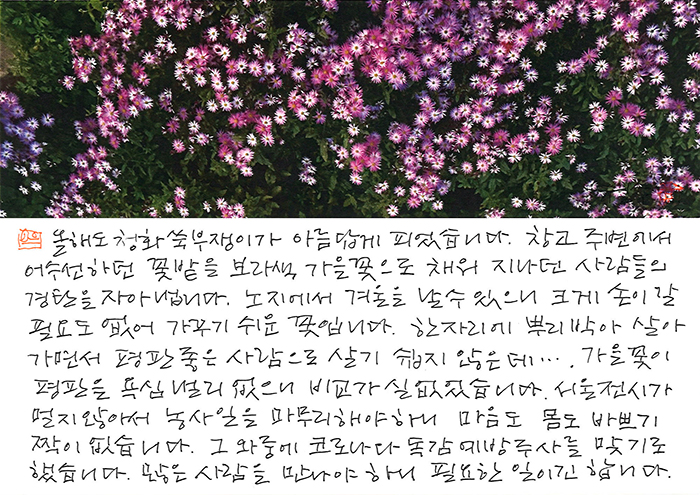 올해도 청화쑥부쟁이가 아름답게 피었습니다. 창고 주변에서
어수선하던 꽃밭을 보라색 가을꽃으로 채워 지나던 사람들의
경탄을 자아냅니다. 노지에서 겨울을 날 수 있으니 크게 손이 갈
필요도 없어 가꾸기 쉬운 꽃입니다. 한자리에 뿌리박아 살아
가면서 평판 좋은 사람으로 살기 쉽지 않은데···. 가을꽃이
평판을 욕심낼리 없으니 비교가 실없었습니다. 서울전시가
멀지않아서 농사일을 마무리해야하니 마음도 몸도 바쁘기
짝이 없습니다. 그 와중에 코로나다 독감 예방주사를 맞기로
했습니다. 많은 사람을 만나야 하니 필요한 일이긴 합니다.